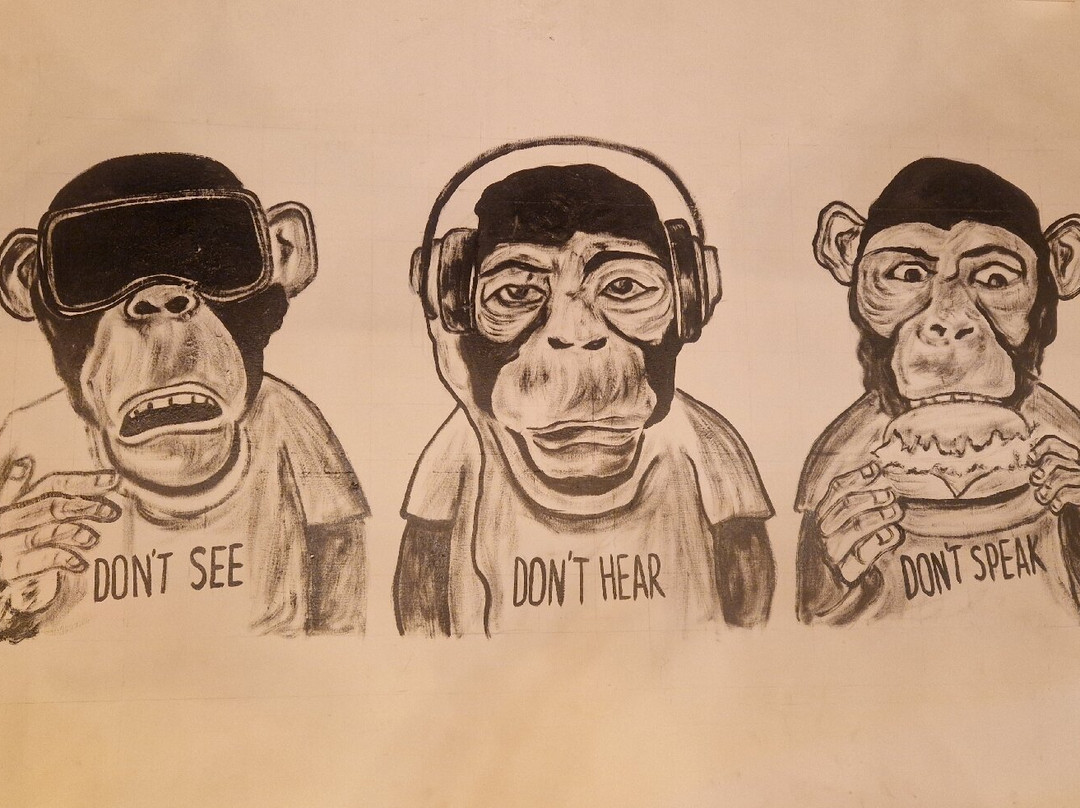 DON'T SEE
DON'T HEAR
DON'T SPEAK